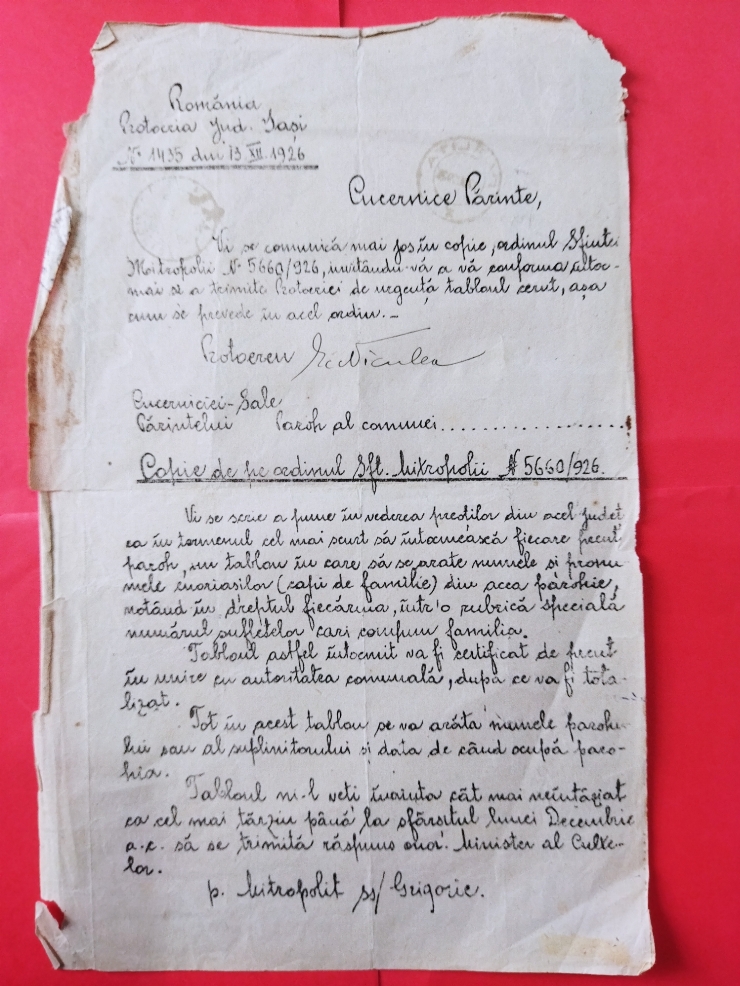 România
Protoeria Jud. Iași
№ 1435 din 13 XII. 1926
Cucernice Părinte,
Vi se comunică mai jos în copie, ordinul Sfintei
Mitropolii № 5660/926, invitându-vă a vă conforma întoc-
mai și a trimite Protoeriei de urgență tabloul cerut, așa
cum se prevede în acel ordin. —
Protoereu Ec Niculea
Cucerniciei-Sale
Părintelui Paroh al comunei....................
Copie de pe ordinul Sft. Mitropolii № 5660/926.
Vi se scrie a pune în vederea preoților din acel județ
ca în termenul cel mai scurt să întocmească fiecare preot
paroh, un tablou în care să se arate numele și pronu
mele enoriașilor (capii de familie) din acea parohie,
notând în dreptul fiecăruia, într'o rubrică specială
numărul sufletelor cari compun familia.
Tabloul astfel întocmit va fi certificat de preot
în unire cu autoritatea comunală, după ce va fi tota-
lizat.
Tot în acest tablou se va arăta numele parohu
lui sau al suplinitorului și data de când ocupă paro-
hia.
Tabloul ni-l veți înainta cât mai neîntâziat
ca cel mai târziu până la sfârșitul lunei Decembrie
a.c. să se trimită răspuns onor. Minister al Culte-
lor.
p. Mitropolit ss/ Grigorie.